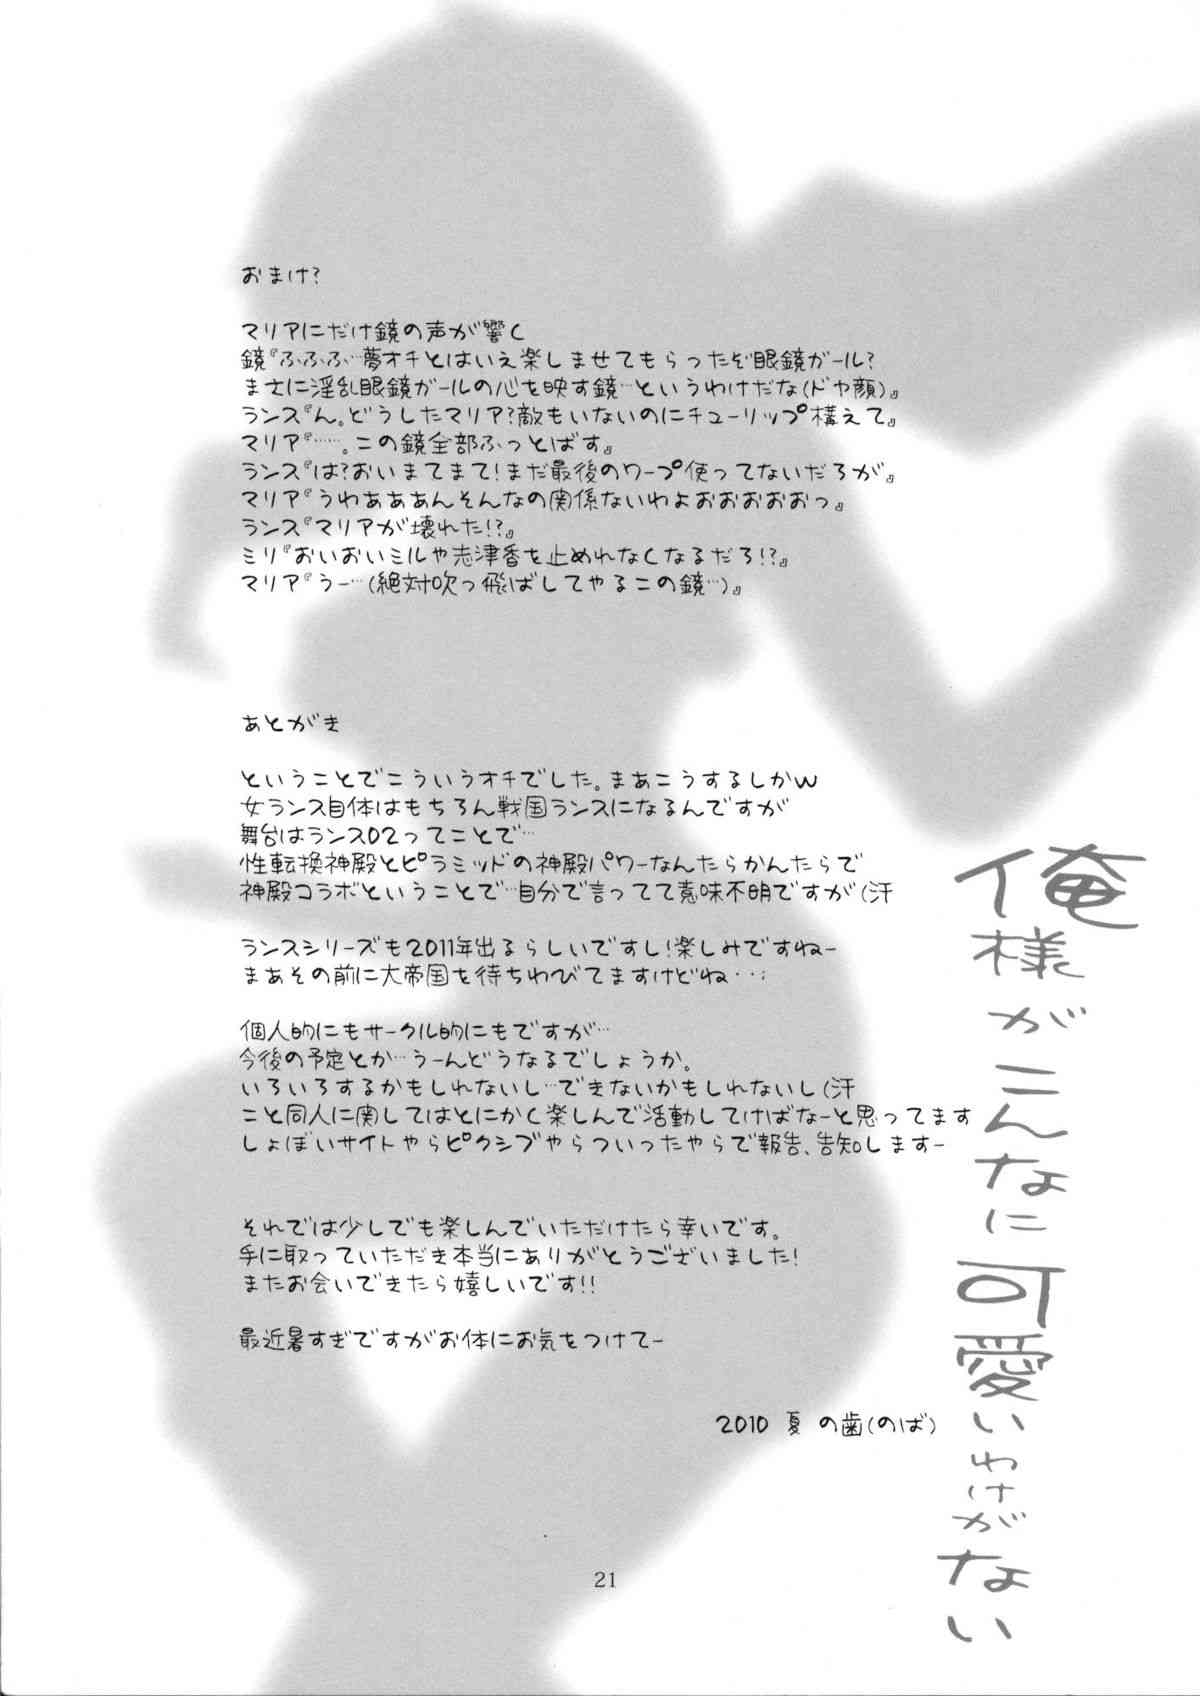 おまけ?
マリアにだけ鏡の声が響く
鏡『ふふふ…夢オチとはいえ楽しませてもらったぞ眼鏡ガール?
まさに淫乱眼鏡ガールの心を映す鏡…というわけだな(ドヤ顔)』
ランス『ん。どうしたマリア?敵もいないのにチューリップ構えて』
マリア『……。この鏡全部ふっとばす』
ランス『は?おいまてまて!まだ最後のワープ使ってないだろが』
マリア『うわあああんそんなの関係ないわよおおおおおっ』
ランス『マリアが壊れた!?』
ミリ『おいおいミルや志津香を止めれなくなるだろ!?』
マリア『うー…(絶対吹っ飛ばしてやるこの鏡…)』
あとがき
ということでこういうオチでした。まあこうするしかw
女ランス自体はもちろん戦国ランスになるんですが
舞台はランス02ってことで…
性転換神殿とピラミッドの神殿パワーなんたらかんたらで
神殿コラボということで…自分で言ってて意味不明ですが(汗
ランスシリーズも2011年出るらしいですし!楽しみですねー
まあその前に大帝国を待ちわびてますけどね・・・;
個人的にもサークル的にもですが…
今後の予定とか…うーんどうなるでしょうか。
いろいろするかもしれないし…できないかもしれないし(汗
こと同人に関してはとにかく楽しんで活動してけばなーと思ってます
しょぼいサイトやらピクシブやらついったやらで報告、告知しますー
それでは少しでも楽しんでいただけたら幸いです。
手に取っていただき本当にありがとうございました!
またお会いできたら嬉しいです!!
最近暑すぎですがお体にお気をつけてー
2010 夏 の歯(のば)
俺様がこんなに可愛いわけがない
21